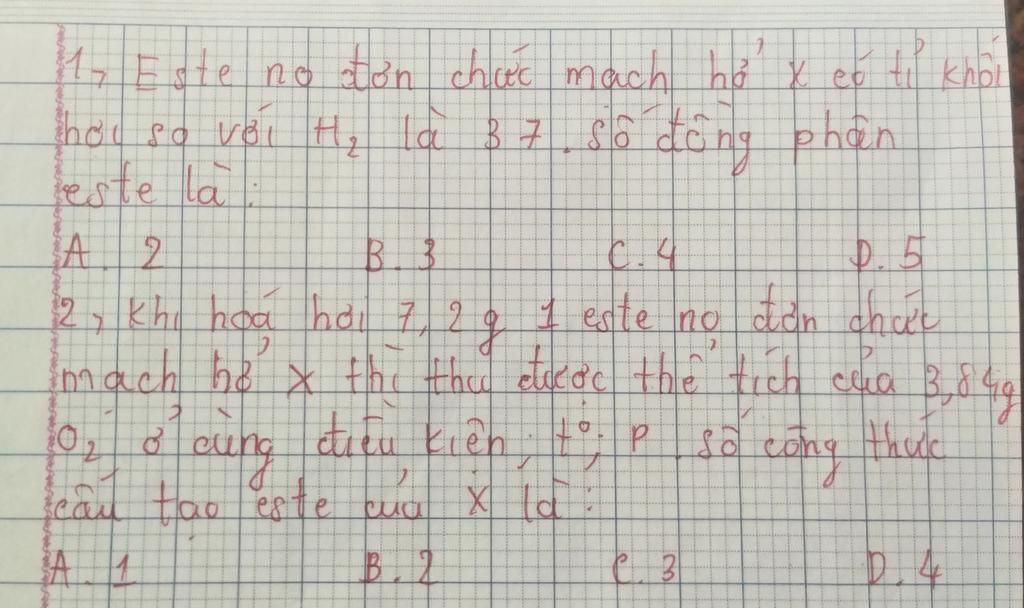 1, Este no đơn chức mạch hở X có tỉ khối
hơi so với H₂ là 37. số đồng phân
este là:
A. 2 B. 3 C. 4 D. 5
2, Khi hoá hơi 7,2g 1 este no đơn chức
mạch hở X thì thu được thể tích của 3,84g
O₂ ở cùng điều kiện, t°, P số công thức
cấu tạo este của X là:
A. 1 B. 2 C. 3 D. 4